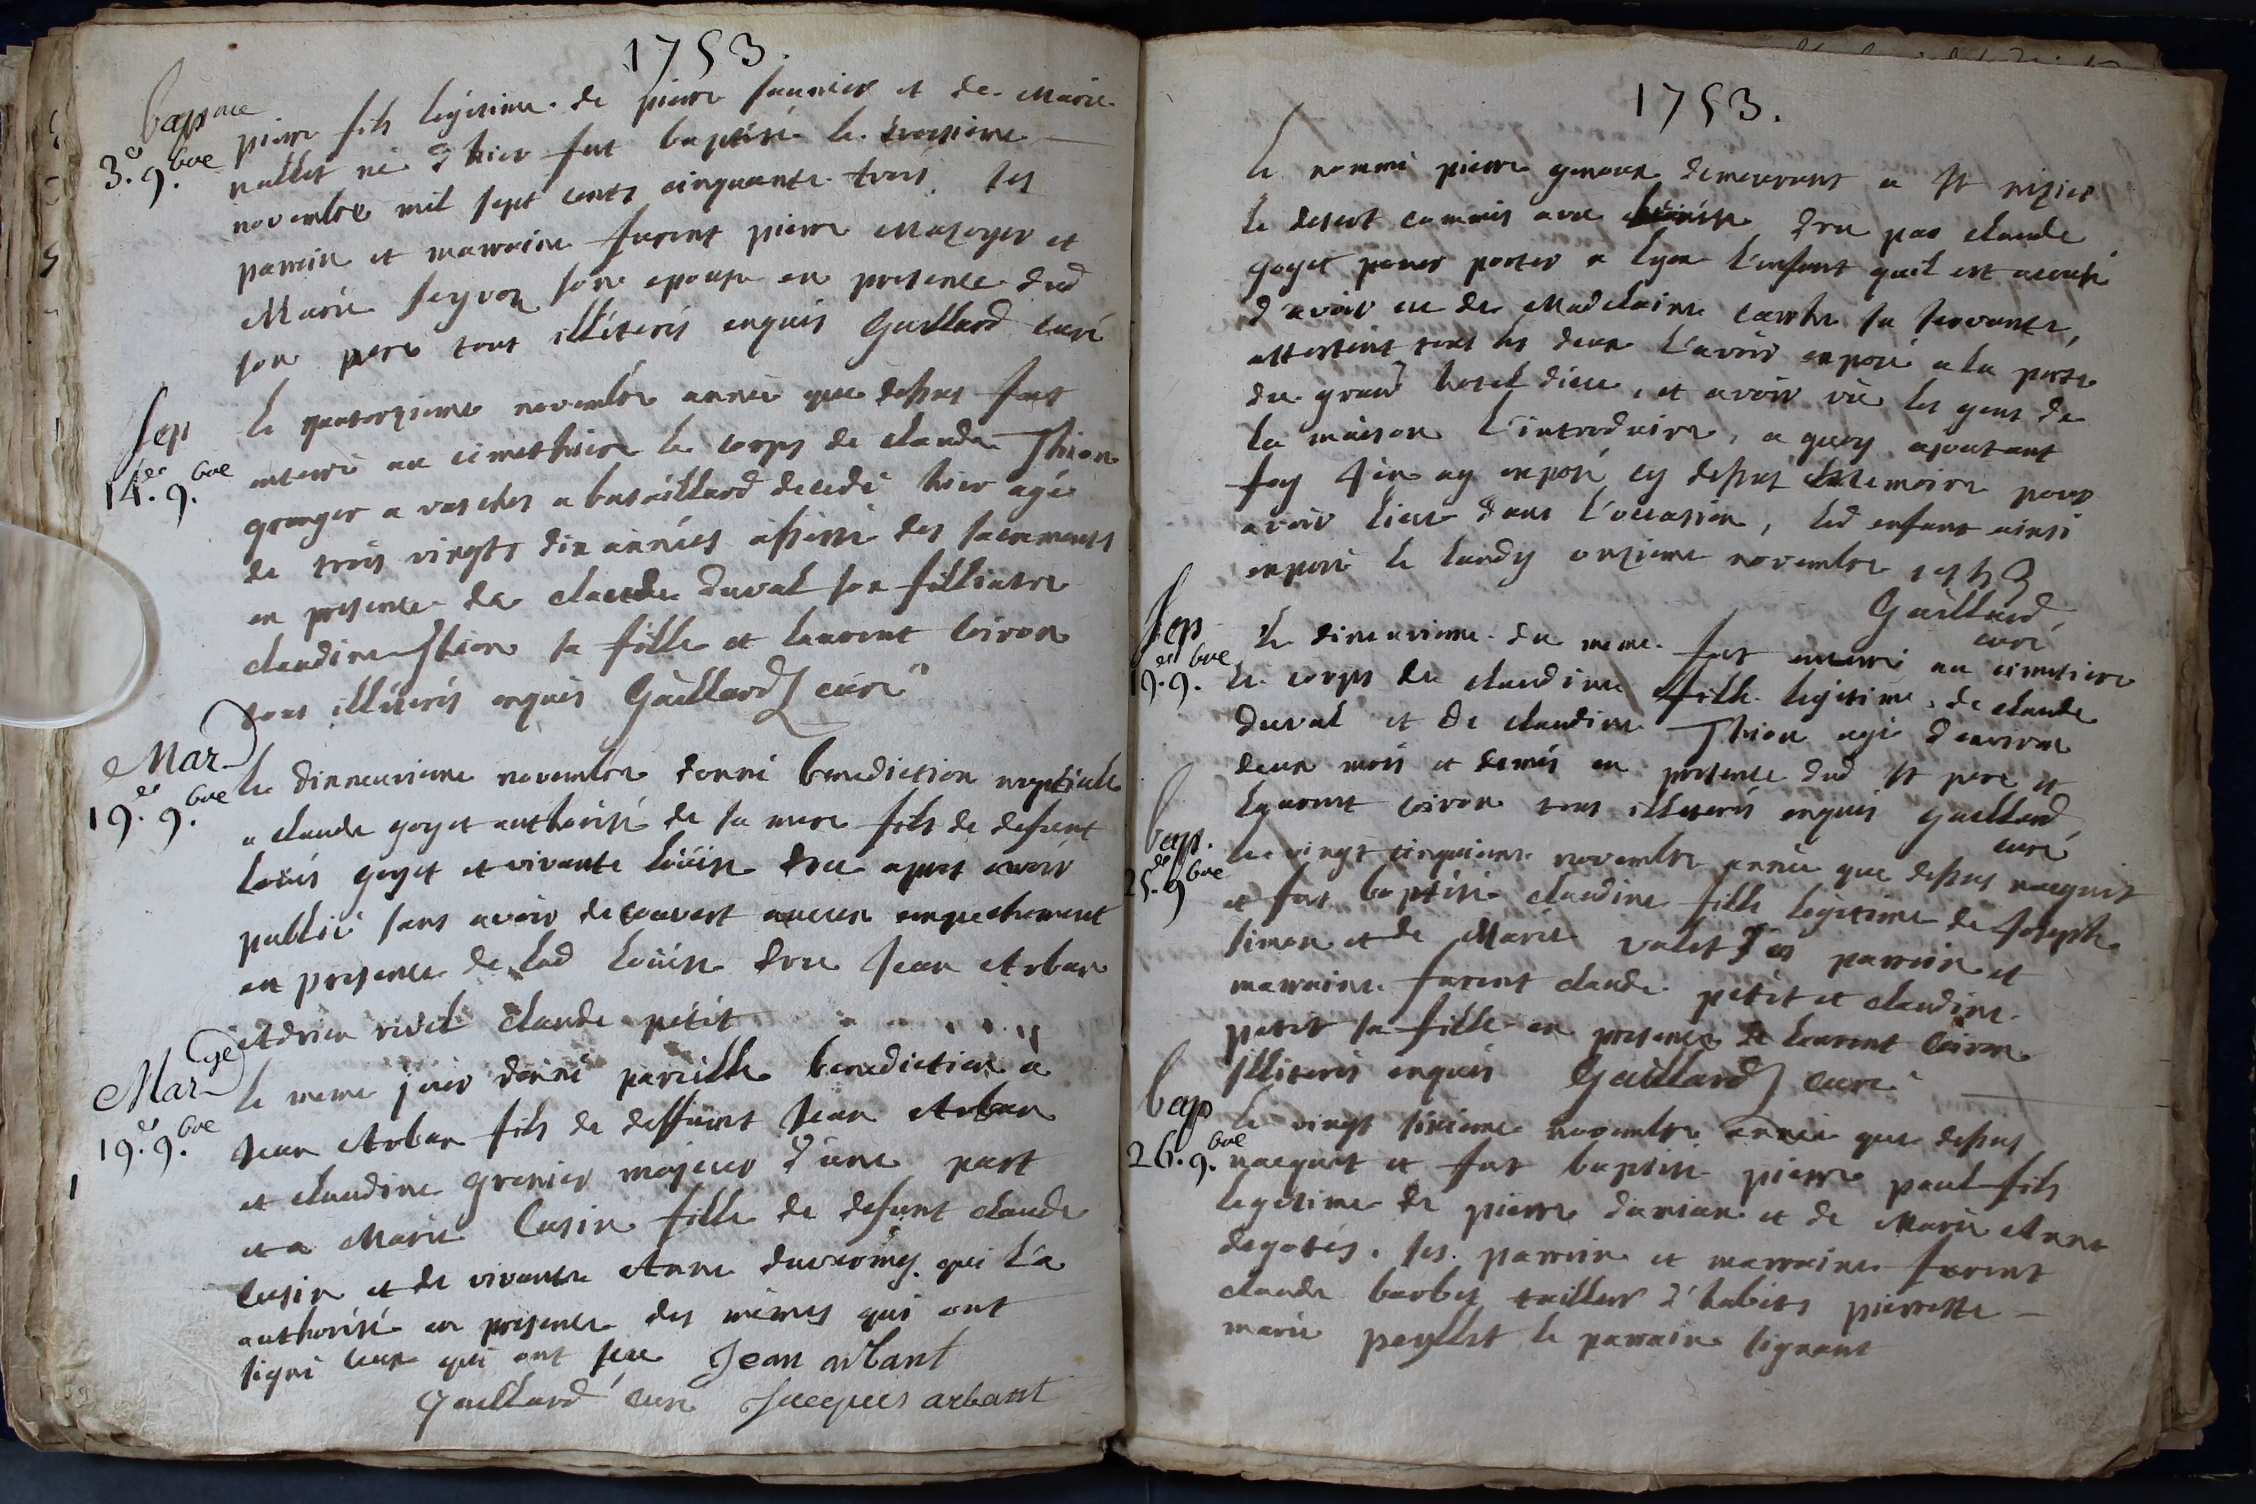 1753.
bapme
3.e 9.bre
pierre fils legitime de pierre saunier et de Marie
nallet né d'hier fut baptisé le troisieme
novembre mil sept cents cinquante trois ses
parrein et marraine furent pierre Mazoyer et
Marie seyvoz son epouse en presence dud
son pere tous illiterés enquis Gaillard curé
sep
14.e 9.bre
le quatorzieme novembre année que dessus fut
enterré au cimethiere le corps de claude Thion
granger a vasches a bataillard decedé hier agé
de trois vingts dix années assisté des sacrements
en presence de claude duval son filliatre
claudine Thion sa fille et laurent Coiron
tous illiterés enquis Gaillard curé
Mar
19.e 9.bre
le dixneuvieme novembre donné benediction nuptiale
a claude goyet authorisé de sa mere fils de defunt
loüis goyet et vivante loüise dru apres avoir
publié sans avoir decouvert aucun empechement
en presence de lad loüise dru Jean Arban
Adrien rivel claude petit
Marge
19.e 9.bre
le meme jour donné pareille benediction a
Jean Arban fils de deffunt Jean Arban
et claudine grenier majeur d'une part
et a Marie Cusin fille de defunt claude
Cusin et de vivante Anne duverney qui l'a
authorisé en presence des mêmes qui ont
signé ceux qui ont sçu Jean arbant
Gaillard curé Jacques arbant
1753.
le nommé pierre demeurant a St nizier
le desert commis avec loüise dru par claude
goyet pour porter a lyon l'enfant qu'il est accusé
d'avoir eu de Madelaine sa servante,
attestent tous les deux l'avoir exposé a la porte
du grand hotel dieu, et avoir vû les gens de
la maison l'introduire, a quoy ajoutant
foy j'en ay exposé cy dessus memoire pour
avoir lieu dans l'occasion, led enfant ainsi
exposé le lundy onzieme novembre 1753
Gaillard
curé
sep
19.e 9.bre
le dixneuvieme du meme fut enterré au cimetiere
le corps de claudine fille legitime de claude
duval et de claudine Thion agé d'environ
deux mois et demis en presence dud st pere et
laurent coiron tous illiterés enquis Gaillard
curé
bap.
25.e 9bre
le vingt cinquieme novembre année que dessus naequit
et fut baptisée claudine fille legitime de Joseph
simon et de Marie valet ses parrein et
marraine furent claude petit et claudine
petit sa fille en presence de laurent Coiron
illiterés enquis Gaillard curé
bap
26.9.bre
le vingt sixieme novembre année que dessus
nacquit et fut baptisé pierre paul fils
legetime de pierre damian et de Marie Anne
degatés. ses parrein et marraine furent
claude barbet tailleur d'habits pierrette
marie peyllet le parrain signant